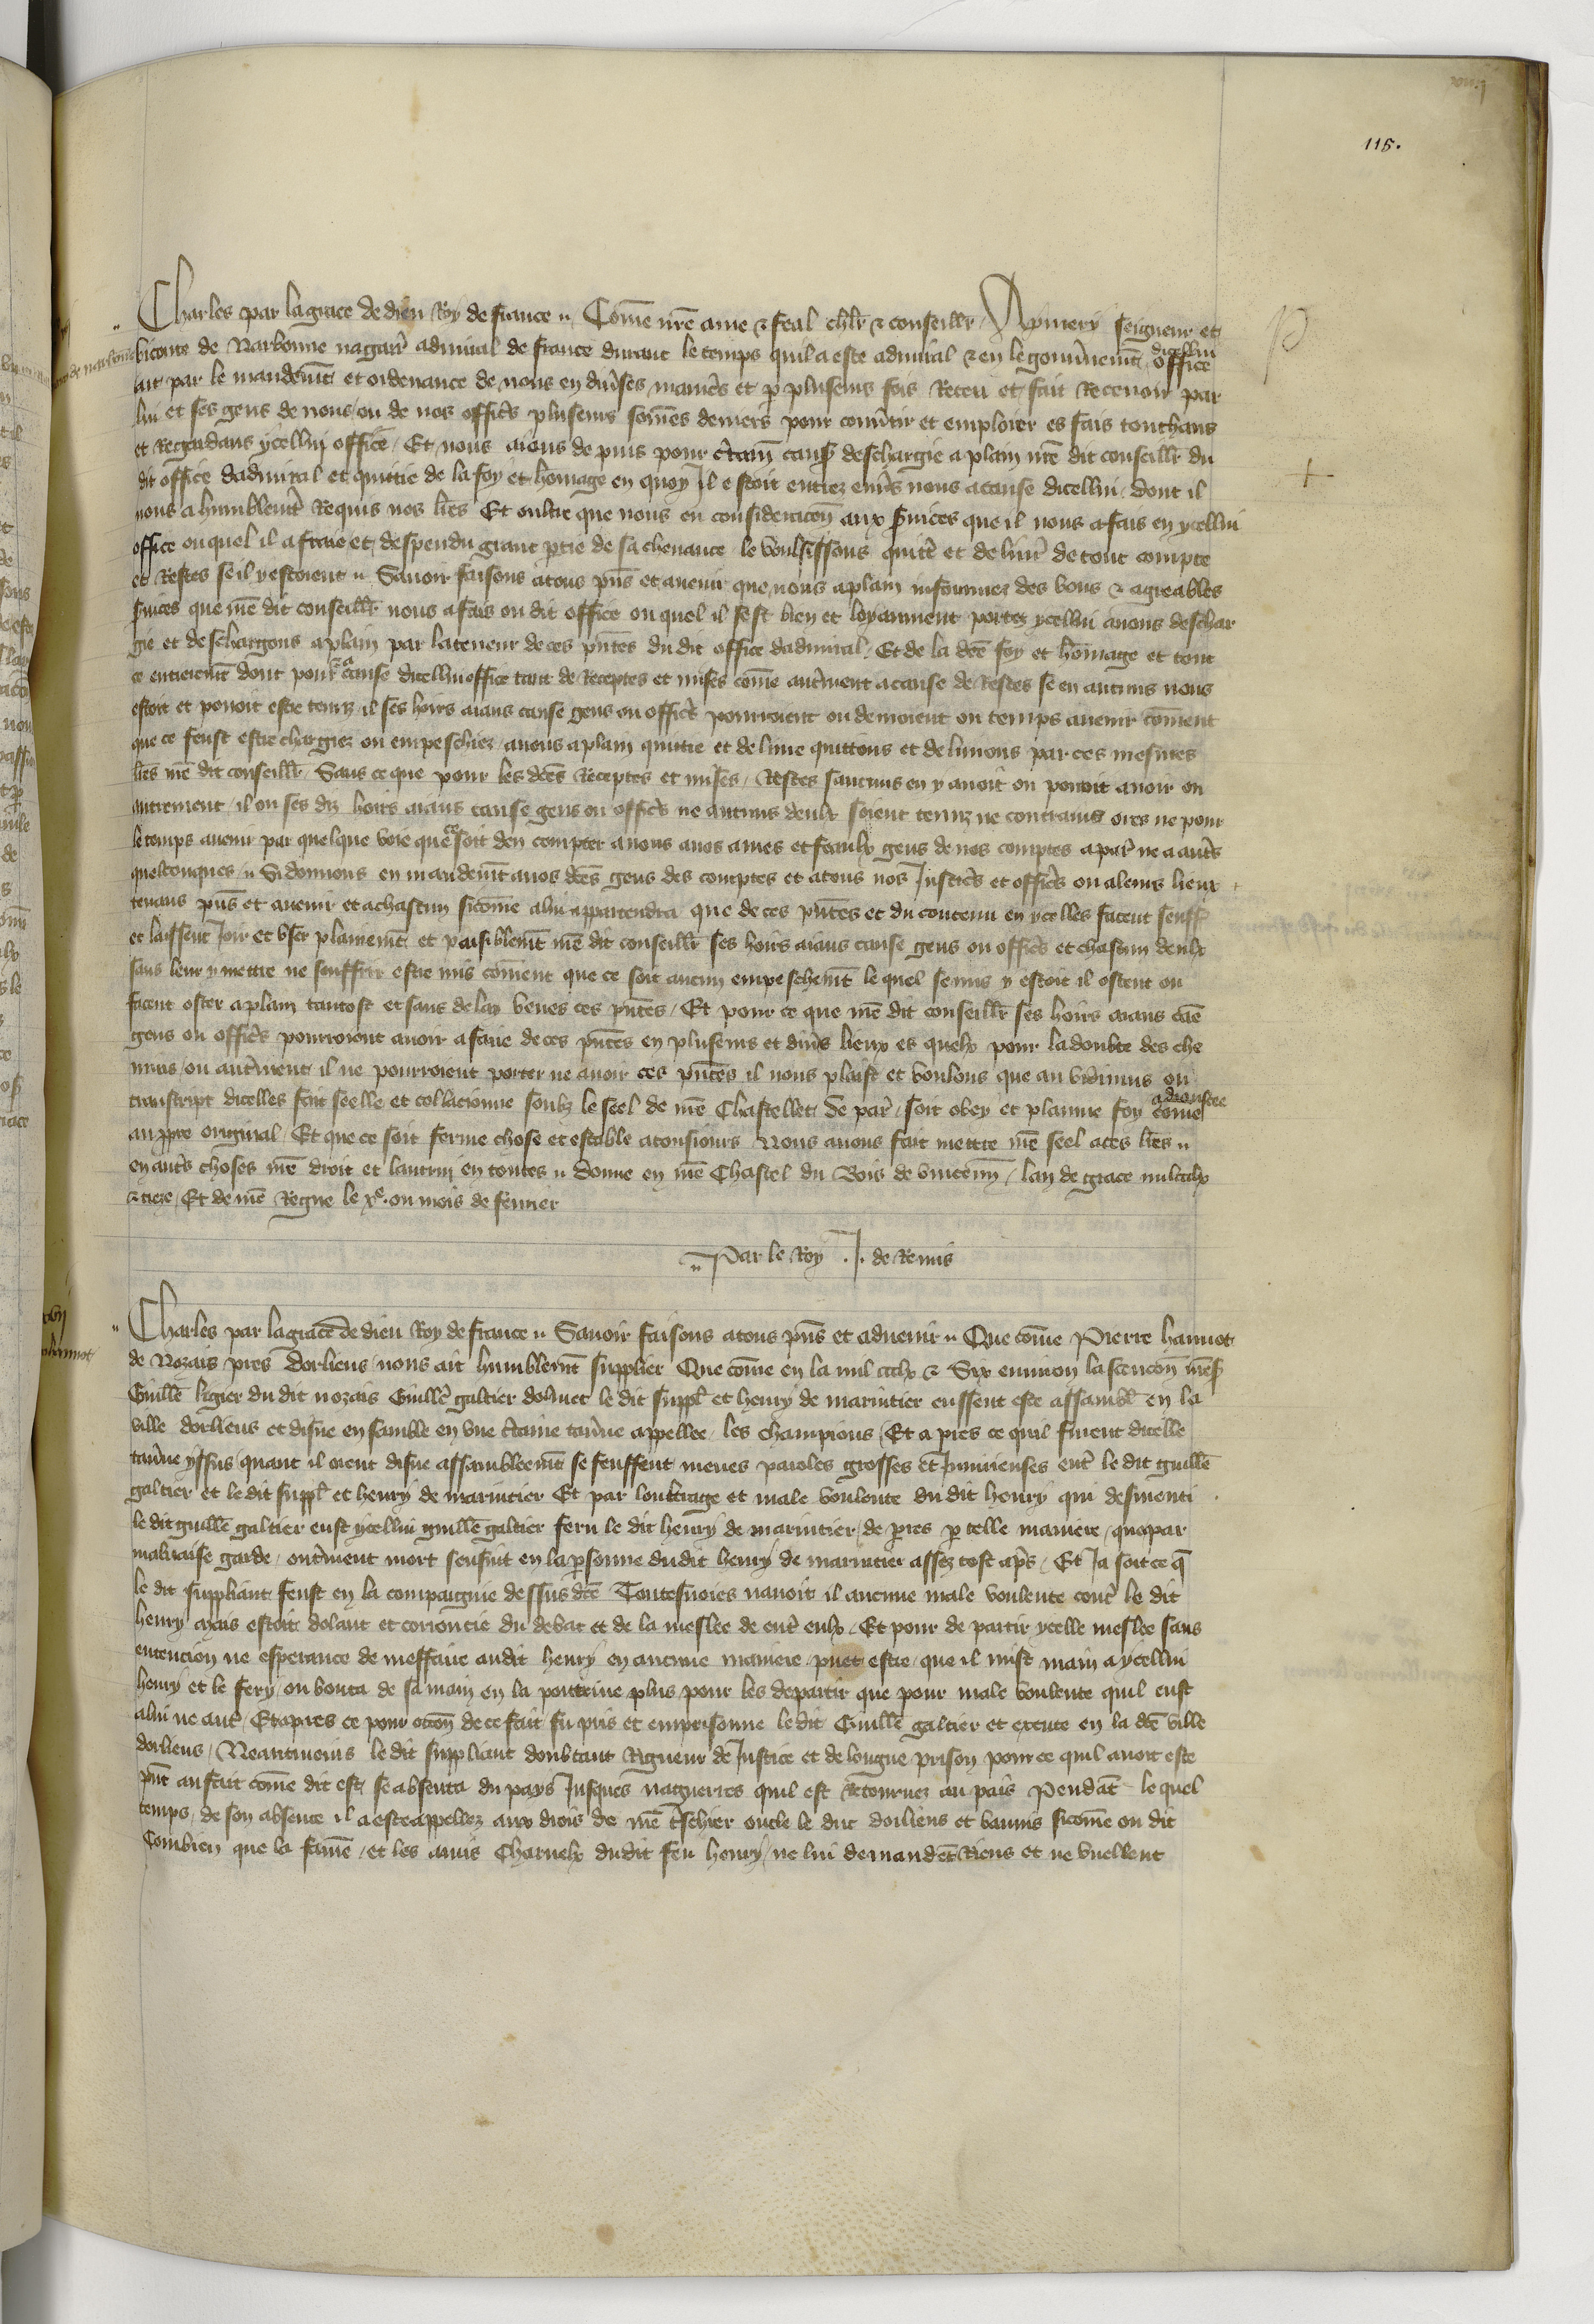 115.
Charles par la grace de dieu Roy de france Come nre ame & feal chlr & conseillr Aymery seigneur et
viconte de Narbonne nagair admiral de france durant le temps quil a este admiral & en le gouvnemt dicellui office
ait par le mandemt et ordenance de nous en divses manies et p plusieurs fois Receu et fait Recevoir par
lui et ses gens de nous ou de nos offics plusieurs somes deniers pour convtir et emploier es fais touchans
et Regardans ycellui office Et nous aions depuis pour ctain caus deschargie a plain nre dit conseillr du
dit office dadmiral et quittie de la foy et homage en quoy Il estoit entrez envs nous a cause dicellui dont il
nous a humblemt Requis nos lres Et oultre que nous en consideracon aux svices que il nous a fais en ycellui
office ouquel il a fraie et despendu grant ptie de sa chevance le voulsissons quitt et delivr de tout compte
et Restes se il y estoient Savoir faisons a tous pns et avenir que nous a plain informez des bons & agreables
svices que nre dit conseillr nous a fais ou dit office ouquel il sest bien et loyaument portez ycellui avons deschar
gie et deschargons a plain par la teneur de ces pntes du dit office dadmiral Et de la dce foy et homage et tout
ce entieremt dont pour cause dicellui office tant de Receptes et mises come autrment a cause de Restes se en aucuns nous
estoit et povoit estre tenuz il ses hoirs aians cause gens ou offics pourroient ou devroient ou temps avenir coment
que ce feust estre chargiez ou empeschiez avons a plain quittie et delivre quittons et delivrons par ces mesmes
lres nre dit conseillr Sans ce que pour les dces Receptes et mises Restes saucuns en y avoit ou povoit avoir ou
autrement il ou ses diz hoirs aians cause gens ou offics ne aucuns deulx soient tenuz ne contrains ores ne pour
le temps avenir par quelque voie que ce soit den compter a nous a nos ames et feaulx gens de nos comptes a par ne a auts
quelconques Si donnons en mandemt a nos dces gens des comptes et a tous nos Justics et offics ou a leurs lieux
tenans pns et avenir et a chascun sicome a lui appartendra que de ces pntes et du contenu en ycelles facent seuff
et laissent Joir et user plainemt et paisiblemt nre dit conseillr ses hoirs aians cause gens ou offics et chascun deulx
sans leur y mettre ne souffrir estre mis coment que ce soit aucun empeschemt lequel se mis y estoit il ostent ou
facent oster a plain tantost et sans delay veues ces pntes Et pour ce que nre dit conseillr ses hoirs aians cae
gens ou offics pourroient avoir a faire de ces pntes en plusieurs et divs lieux es quelx pour la doubte des che
mins ou autrment il ne pourroient porter ne avoir ces pntes il nous plaist et voulons que au vidimus ou
transcript dicelles fait seelle et collacionne soubz le seel de nre Chastellet de par soit obey et plainne foy adioustee come
au ppre original Et que ce soit ferme chose et estable a tousiours Nous avons fait mettre nre seel a ces lres
en auts choses nre droit et lautrui en toutes donne en nre Chastel du Bois de vincenn lan de grace mil ccclx
& treze Et de nre Regne le xe ou mois de fevrier
Par le Roy J. de Remis
Charles par la grace de dieu Roy de france Savoir faisons a tous pns et advenir Que come Pierre hannot
de Nozais pres dorliens nous ait humblemt supplier Que come en lan mil ccclx & Six environ lascencon nres
Guille ligier du dit nozais Guille galtier dolivet le dit suppl et henry de marintier eussent este assambl en la
ville dorliens et disne ensamble en une ctaine tavne appellee les champions Et apres ce quil furent dicelle
tavne yssus quant il orent disne assambleemt se feussent meues paroles grosses et Iniurieuses ent le dit guille
galtier et le dit suppl et henry de marintier Et par loultrage et male voulente du dit henry qui desmenti
le dit guille galtier eust ycellui guille galtier feru le dit henry de marintier de pres p telle maniere que par
mauvaise garde ou autrment mort sensuit en la psonne dudit henry de marintier assez tost aps Et Ja soit ce q
le dit suppliant feust en la compaignie dessus dce Toutesvoies navoit il aucune male voulente cont le dit
henry mais estoit dolant et corroucie du debat et de la meslee de ent eulx Et pour departir ycelle meslee sans
entencion ne esperance de meffaire audit henry en aucune maniere puet estre que il mist main a ycellui
henry et le fery ou bouta de sa main en la poictrine plus pour les departir que pour male voulente quil eust
a lui ne aut Et apres ce pour occon de ce fait fu pris et emprisonne le dit Guille galtier et execute en la dce ville
dorliens Neantmoins le dit suppliant doubtant Rigueur de Justice et de longue prison pour ce quil avoit este
pnt au fait come dit est se absenta du pays Jusques nagueires quil est Retournez au pais Pendat le quel
temps de son absence il a este appellez aux drois de nre tschier oncle le duc dorliens et bannis sicome on dit
Combien que la fame et les amis Charnelx dudit feu henry ne lui demandet Riens et ne vuellent